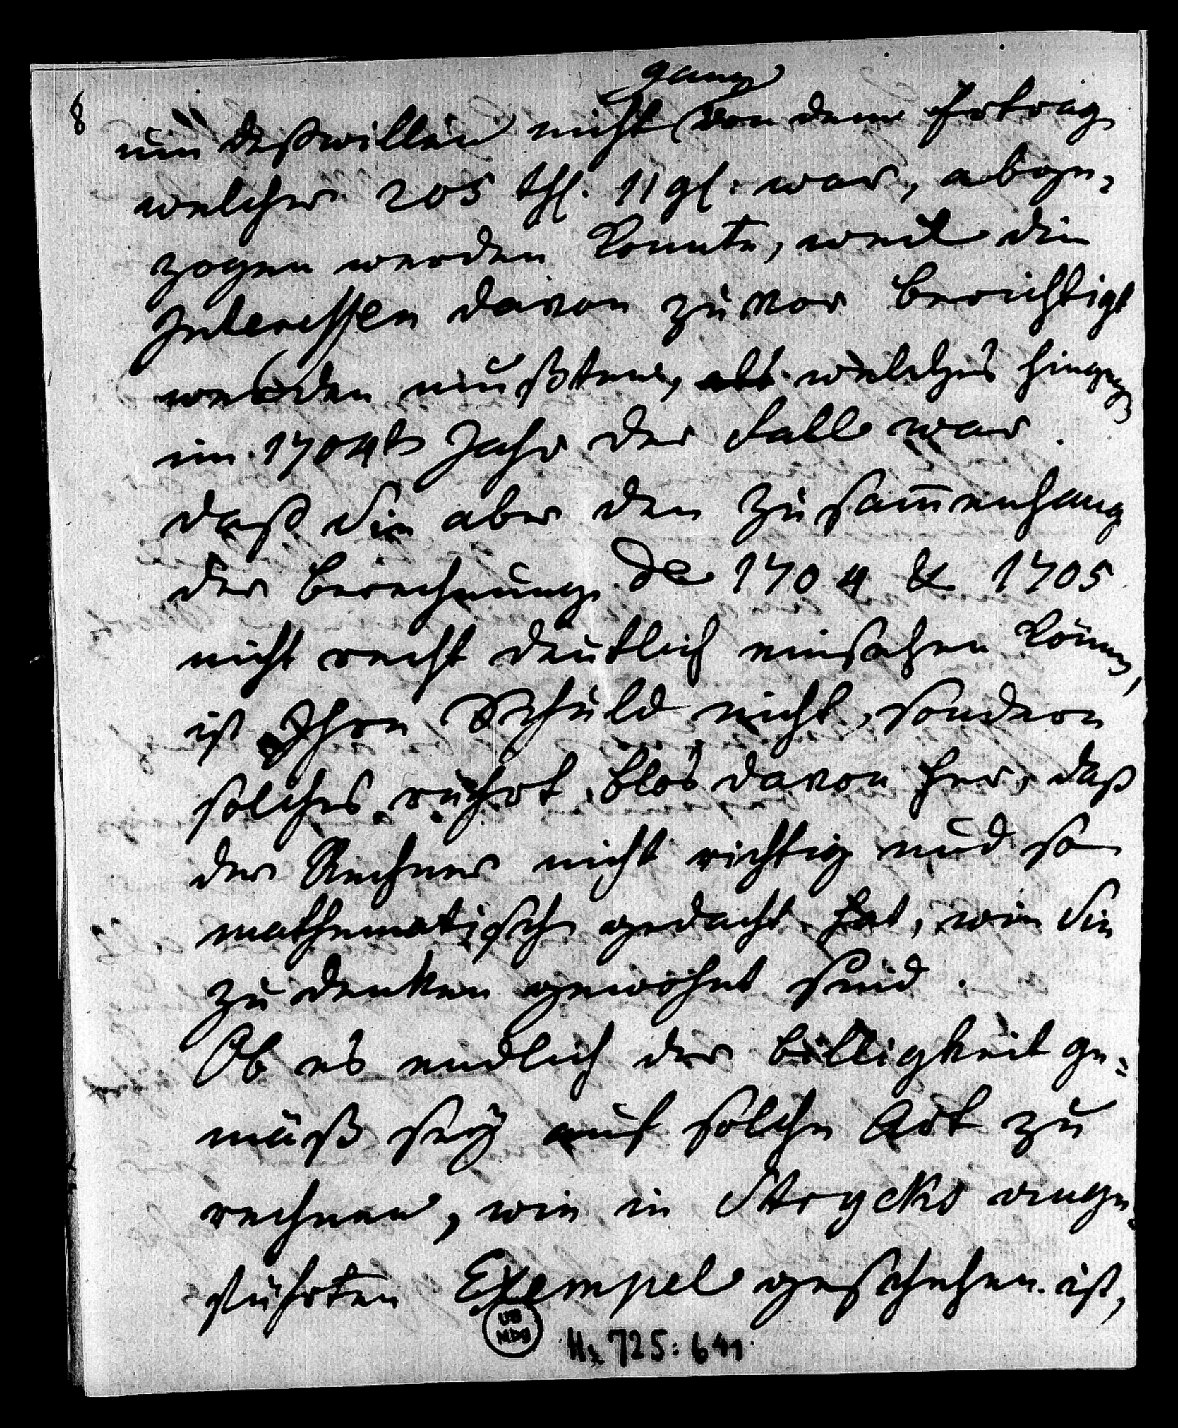 8
ganz
um deßwillen nicht von dem Ertrag
welcher 205 thl. 11 gl. war, abge-
zogen werden konnte, weil die
Interessen davon zuvor berichtigt
werden mußten, welches hingegen
im 1704t Jahr der Fall war.
daß Sie aber den Zusam̅enhang
der Berechnung de 1704 & 1705
nicht recht deutlich einsehen können,
ist Ihre Schuld nicht, sondern
solches rührt blos davon her, daß
der Rechner nicht richtig und so
mathematisch gedacht hat, wie Sie
zu denken gewohnt sind.
Ob es endlich der billigkeit ge-
mäß sey auf solche Art zu
rechnen, wie in Strycks ange-
führten Exempel geschehen ist,
UB
HDB
Hs 725: 641